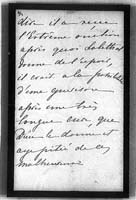 dire il a reçu
l'Extrême onction
après quoi
donne de l'espoir,
il croit à la possibilité
d'une guérison
après une très
longue cure, que
Dieu le donne et
aye pitié de ce
malheureux